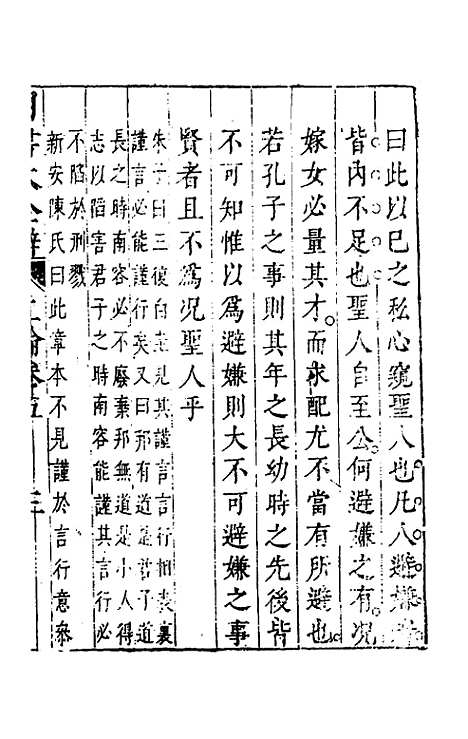 曰此以己之私心窺聖人也凡人避嫌者
皆內不足也聖人自至公何避嫌之有況
嫁女必量其才而求配尤不當有所避也
若孔子之事則其年之長幼時之先後皆
不可知惟以爲避嫌則大不可避嫌之事
賢者且不爲況聖人乎
朱子曰三復白圭見其謹言言行相表裏
謹言必能謹行矣又曰邦有道是君子道
長之時南容必不廢棄邦無道是小人得
志以陷害君子之時南容能謹其言行必
不陷於刑戮
新安陳氏曰此章本不見謹於言行意參
四書大全辯 上論卷五 三